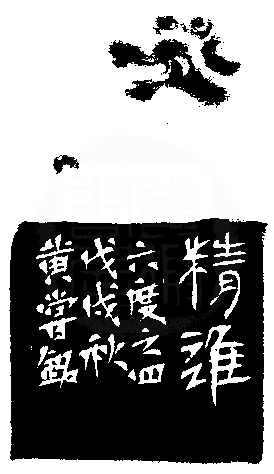 精進
六度之四
戊戌秋
黃嘗銘